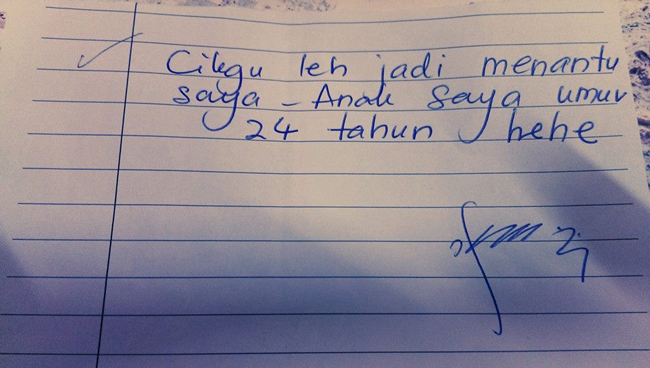 Cikgu leh jadi menantu
saya - Anak saya umur
24 tahun hehe